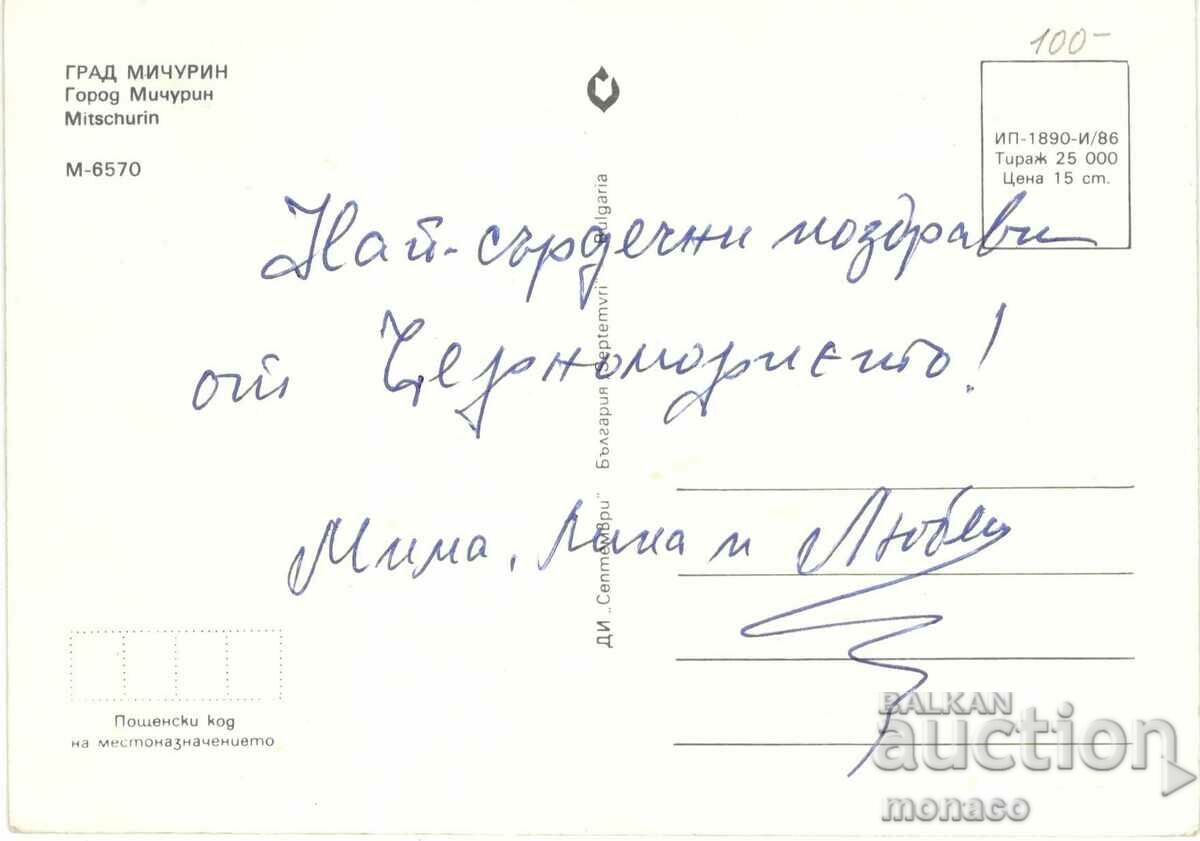 100-
ГРАД МИЧУРИН
Город Мичурин
Mitschurin
М-6570
ИП-1890-И/86
Тираж 25 000
Цена 15 ст.
Най-сърдечни поздрави
от Черноморието!
Мима, Лина и Любен
ДИ „Септември" България Septemvri Bulgaria
Пощенски код
на местоназначението
BALKAN
auction
monaco